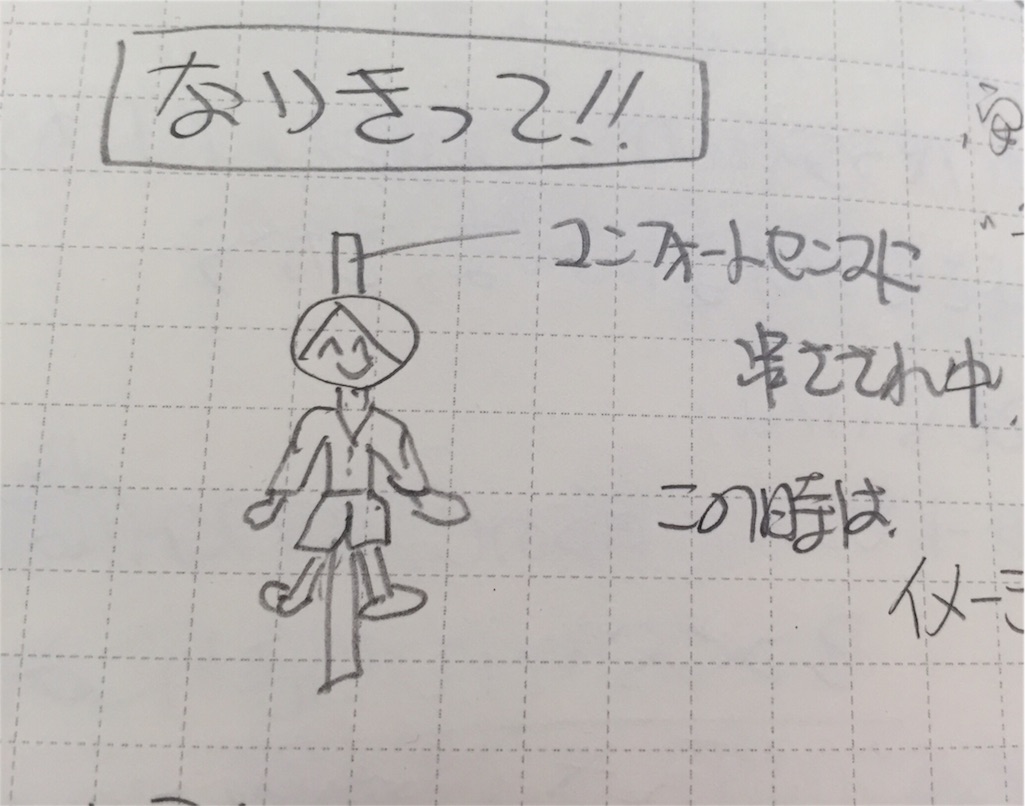 なりきって!!
コンフォートセンスに
串ささされ中
この時は、
イメー